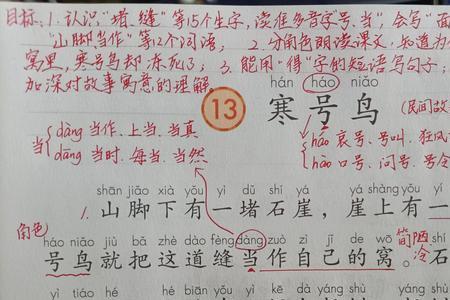 目标、1. 认识"堵、缝"等15个生字,读准多音字"号、当",会写"面
"山脚、当作"等12个词语, 2. 分角色朗读课文,知道为什
窝里,寒号鸟却冻死了; 3. 能用"得"字的短语写句子;
加深对故事寓意的理解。
hán háo niǎo
13 寒号鸟
(民间故
当 dàng 当作、上当、当真
dāng 当时、每当、当然
háo 哀号、号叫、狂风
hào 口号、问号、号令
shān jiǎo xià yǒu yì dǔ shí yá yá shàng yǒu yí
1. 山脚下有一堵石崖,崖上有一
角色
háo niǎo jiù bǎ zhè dào fèng dàng zuò zì jǐ de wō shí
号鸟就把这道缝当作自己的窝。石
简陋
冷
yì tiáo hé hé biān yǒu yì kē dà yáng shù yáng